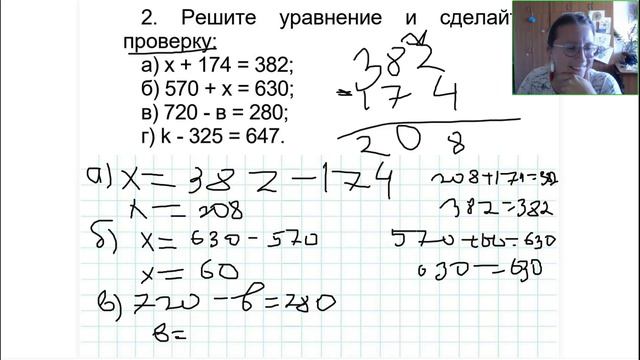 2. Решите уравнение и сделайт
проверку:
а) x + 174 = 382;
б) 570 + x = 630;
в) 720 - в = 280;
г) k - 325 = 647.
382
-174
208
а) x = 382 - 174
x = 208
208+174=382
382=382
б) x = 630 - 570
x = 60
570+60=630
630=630
в) 720 - в = 280
в =